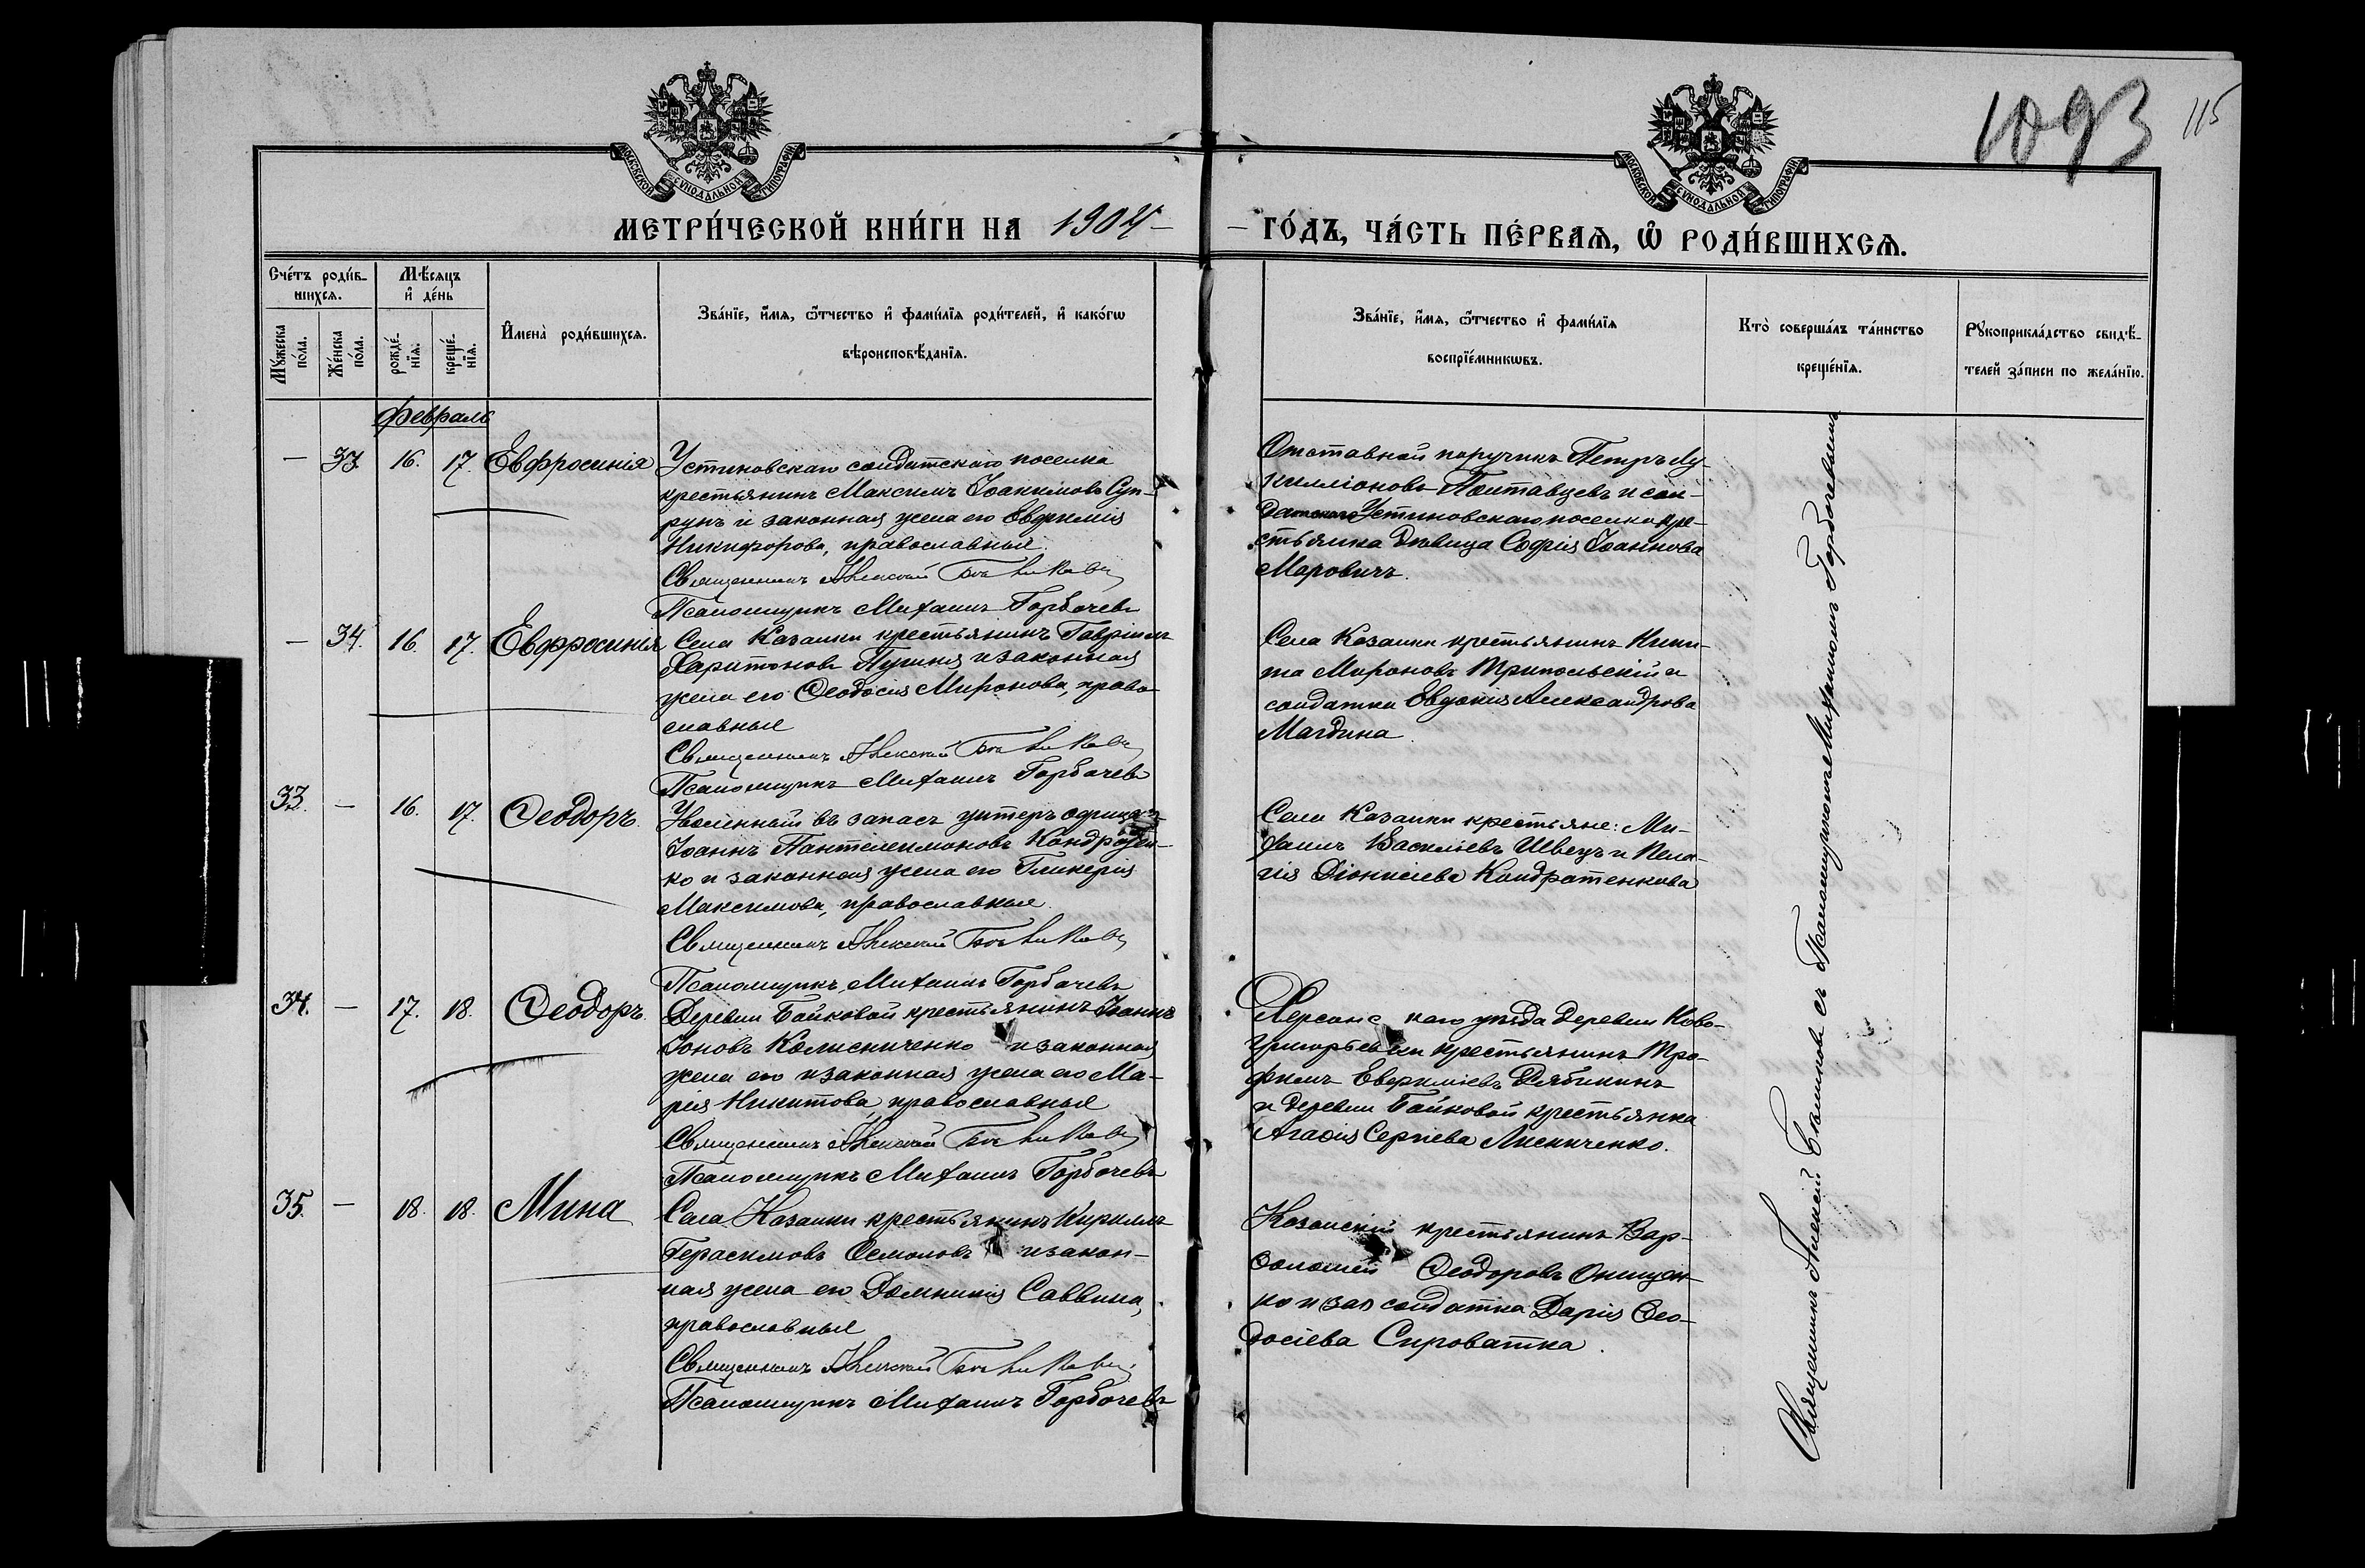 1093
115
МОСКОВСКОЙ СУНОДАЛЬНОЙ ТИПОГРАФІИ
МОСКОВСКОЙ СУНОДАЛЬНОЙ ТИПОГРАФІИ
МЕТРИ́ЧЕСКОЙ КНИ́ГИ НА 1904 –
– ГО́ДЪ, ЧА́СТЬ ПЕ́РВАѦ, Ѿ РОДИ́ВШИХСѦ.
Сче́тъ роди́в-
шихсѧ.
Мѹ́жеска по́ла.
Же́нска по́ла.
Мѣ́сѧцъ
и҆ де́нь
рожде́-
нїѧ.
креще́-
нїѧ.
И҆мена̀ роди́вшихсѧ.
Зва́нїе, и҆́мѧ, ѻ҆́тчество и҆ фами́лїѧ роди́телей, и҆ како́гѡ
вѣроисповѣ́данїѧ.
Зва́нїе, и҆́мѧ, ѻ҆́тчество и҆ фами́лїѧ
воспрїе́мникѡвъ.
Кто̀ соверша́лъ та́инство
креще́нїѧ.
Рѹкоприкла́дство свидѣ́-
телей за́писи по жела́нїю.
Февраль
— 33 16. 17. Евфросинія
Устиновскаго солдатскаго поселка
крестьянинъ Максимъ Іоакимовъ Суп-
рунъ и законная жена его Евфимія
Никифорова, православные.
Священникъ Алексѣй
Псаломщикъ Михаилъ Горбачевъ
Отставной поручикъ Петръ Лу-
килліоновъ Полтавцевъ и сол-
датскаго Устиновскаго поселка кре-
стьянка дѣвица Софія Іоаннова
Маровичъ.
— 34. 16. 17. Евфросинія
Села Казанки крестьянинъ Гавріилъ
Харитоновъ и законная
жена его Ѳеодосія Миронова, право-
славные
Священникъ Алексѣй
Псаломщикъ Михаилъ Горбачевъ
Села Казанки крестьянинъ Ники-
та Мироновъ Трипольскій и
солдатка Евдокія Александрова
Магдина.
33. — 16. 17. Ѳеодоръ.
Уволенный въ запасъ унтеръ офицеръ
Іоаннъ Пантелеимоновъ Кондратен-
ко и законная жена его Гликерія
Максимова, православные.
Священникъ Алексѣй
Псаломщикъ Михаилъ Горбачевъ
Села Казанки крестьяне: Ми-
хаилъ Василіевъ Швецъ и Пела-
гія Діонисіева Кондратенкова
34. — 17. 18. Ѳеодоръ.
Деревни Байковой крестьянинъ Іоаннъ
Іоновъ Колисниченко и законная
жена его и законная жена его Ма-
рія Никитова, православные
Священникъ Алексѣй
Псаломщикъ Михаилъ Горбачевъ
Херсонскаго уѣзда деревни Ново-
григорьевки крестьянинъ Тро-
фимъ Евфиміевъ Дябикинъ
и деревни Байковой крестьянка
Агафія Сергіева Лисниченко.
35. — 18. 18. Мина
Села Казанки крестьянинъ Кириллъ
Герасимовъ Осмоловъ и закон-
ная жена его Домникія Саввина,
православные
Священникъ Алексѣй
Псаломщикъ Михаилъ Горбачевъ
Казанскій крестьянинъ Вар-
ѳоломей Ѳеодоровъ Онищен-
ко и зап солдатка Дарія Ѳео-
досіева Сироватка.
Священникъ Алексѣй съ Псаломщикомъ Михаиломъ Горбачевымъ